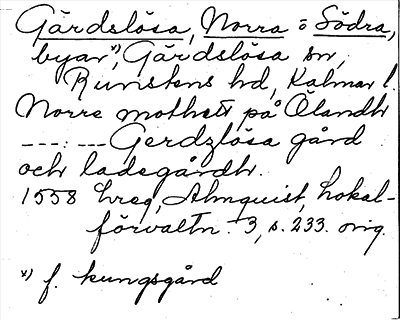 Gärdslösa, Norra o Södra,
byar x), Gärdslösa sn,
Runstens hd, Kalmar l.
Norre mothett på Ölandh
---:--- Gerdzlösa gård
och ladegårdh.
1558 hreg, Almquist, Lokal-
förvaltn. 3, s. 233. orig.
x) f. kungsgård